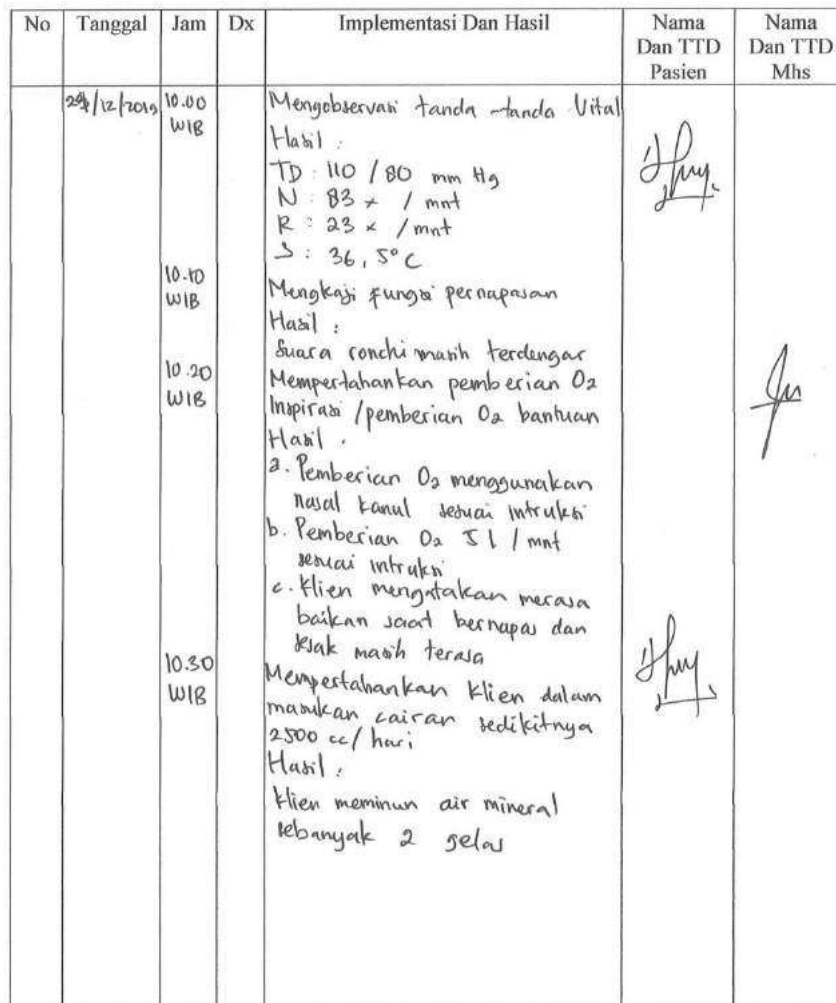 No Tanggal Jam Dx Implementasi Dan Hasil Nama Dan TTD Pasien Nama Dan TTD Mhs
/12/2019 10.00 WIB Mengobservasi tanda-tanda Vital
Hasil :
TD : 110 / 80 mm Hg
N : 83 x / mnt
R : 23 x / mnt
S : 36,5°C
10.10 WIB Mengkaji fungsi pernapasan
Hasil :
Suara ronchi masih terdengar
10.20 WIB Mempertahankan pemberian O2
Inspirasi / pemberian O2 bantuan
Hasil :
a. Pemberian O2 menggunakan
nasal kanul sesuai intruksi
b. Pemberian O2 5 l / mnt
sesuai intruksi
c. Klien mengatakan merasa
baikan saat bernapas dan
sesak masih terasa
10.30 WIB Mempertahankan klien dalam
masukan cairan sedikitnya
2500 cc/ hari
Hasil :
Klien meminun air mineral
sebanyak 2 gelas